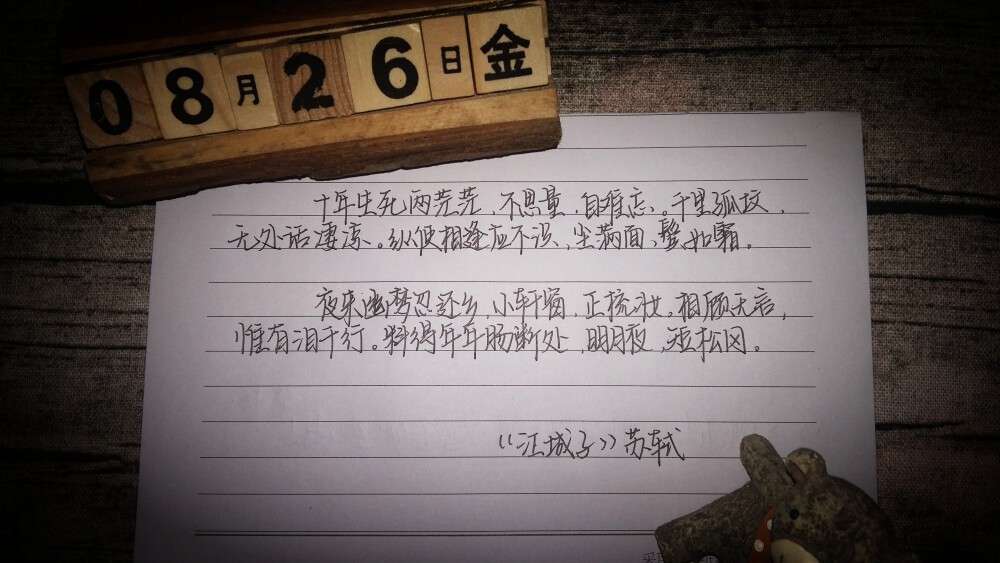 08月26日金
十年生死两茫茫,不思量,自难忘。千里孤坟,
无处话凄凉。纵使相逢应不识,尘满面,鬓如霜。
夜来幽梦忽还乡,小轩窗,正梳妆。相顾无言,
惟有泪千行。料得年年肠断处,明月夜,短松冈。
《江城子》苏轼